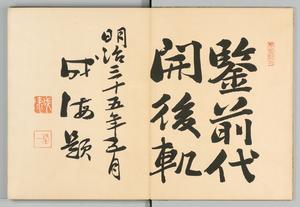 鑒前代
開後軌
明治三十五年五月
成海題